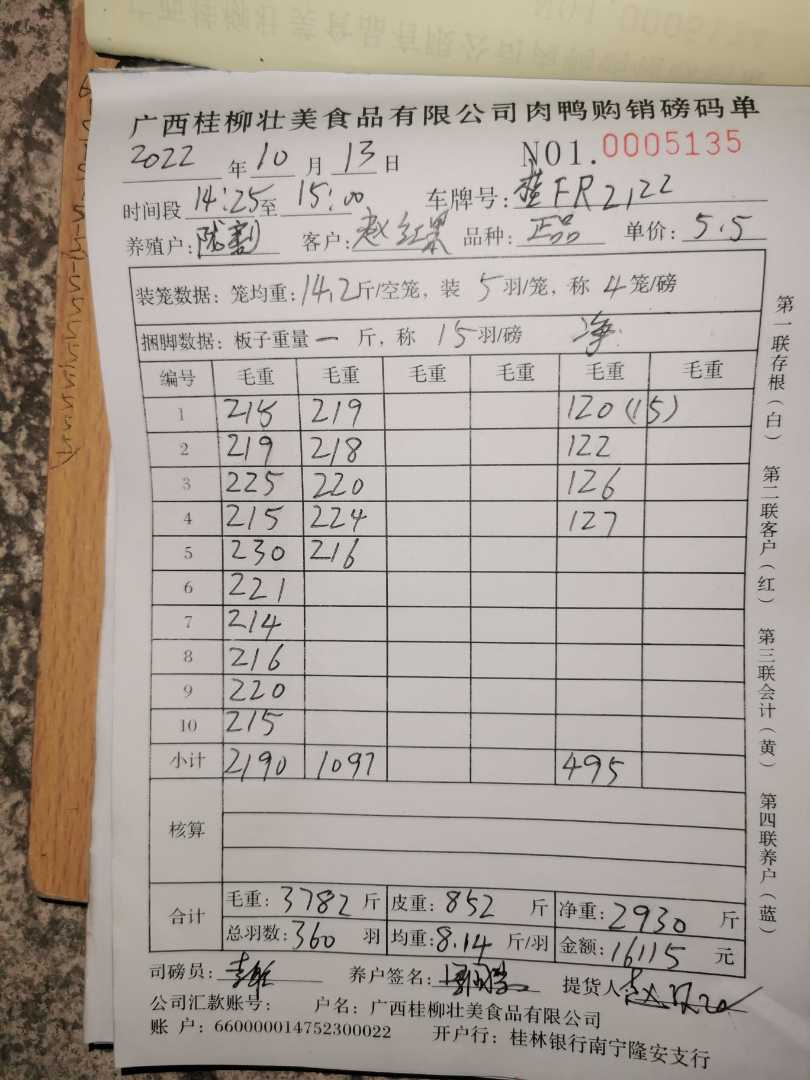 广西桂柳壮美食品有限公司肉鸭购销磅码单
2022 年 10 月 13 日 NO1.0005135
时间段 14:25 至 15:00 车牌号: FR2122
养殖户: 客户: 赵红果 品种: 正品 单价: 5.5
装笼数据: 笼均重: 14.2 斤/空笼, 装 5 羽/笼, 称 4 笼/磅
捆脚数据: 板子重量 一 斤, 称 15 羽/磅 净
编号 毛重 毛重 毛重 毛重 毛重 毛重
1 215 219 120 (15)
2 219 218 122
3 225 220 126
4 215 224 127
5 230 216
6 221
7 214
8 216
9 220
10 215
小计 2190 1097 495
核算
合计 毛重: 3782 斤 皮重: 852 斤 净重: 2930 斤
总羽数: 360 羽 均重: 8.14 斤/羽 金额: 16115 元
司磅员: 养户签名: 提货人
公司汇款账号: 户名: 广西桂柳壮美食品有限公司
账 户: 660000014752300022 开户行: 桂林银行南宁隆安支行
第一联存根(白) 第二联客户(红) 第三联会计(黄) 第四联养户(蓝)